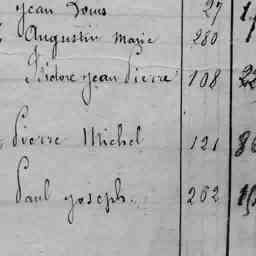 Jean Louis 27
Augustin Marie 280
Isidore Jean Pierre 108 22
Pierre Michel 121
Paul Joseph. 262